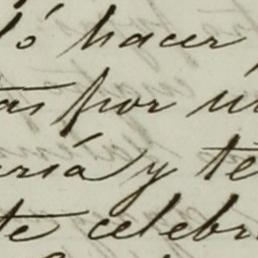 ló hacer
as por ú
ría y te
te celebr